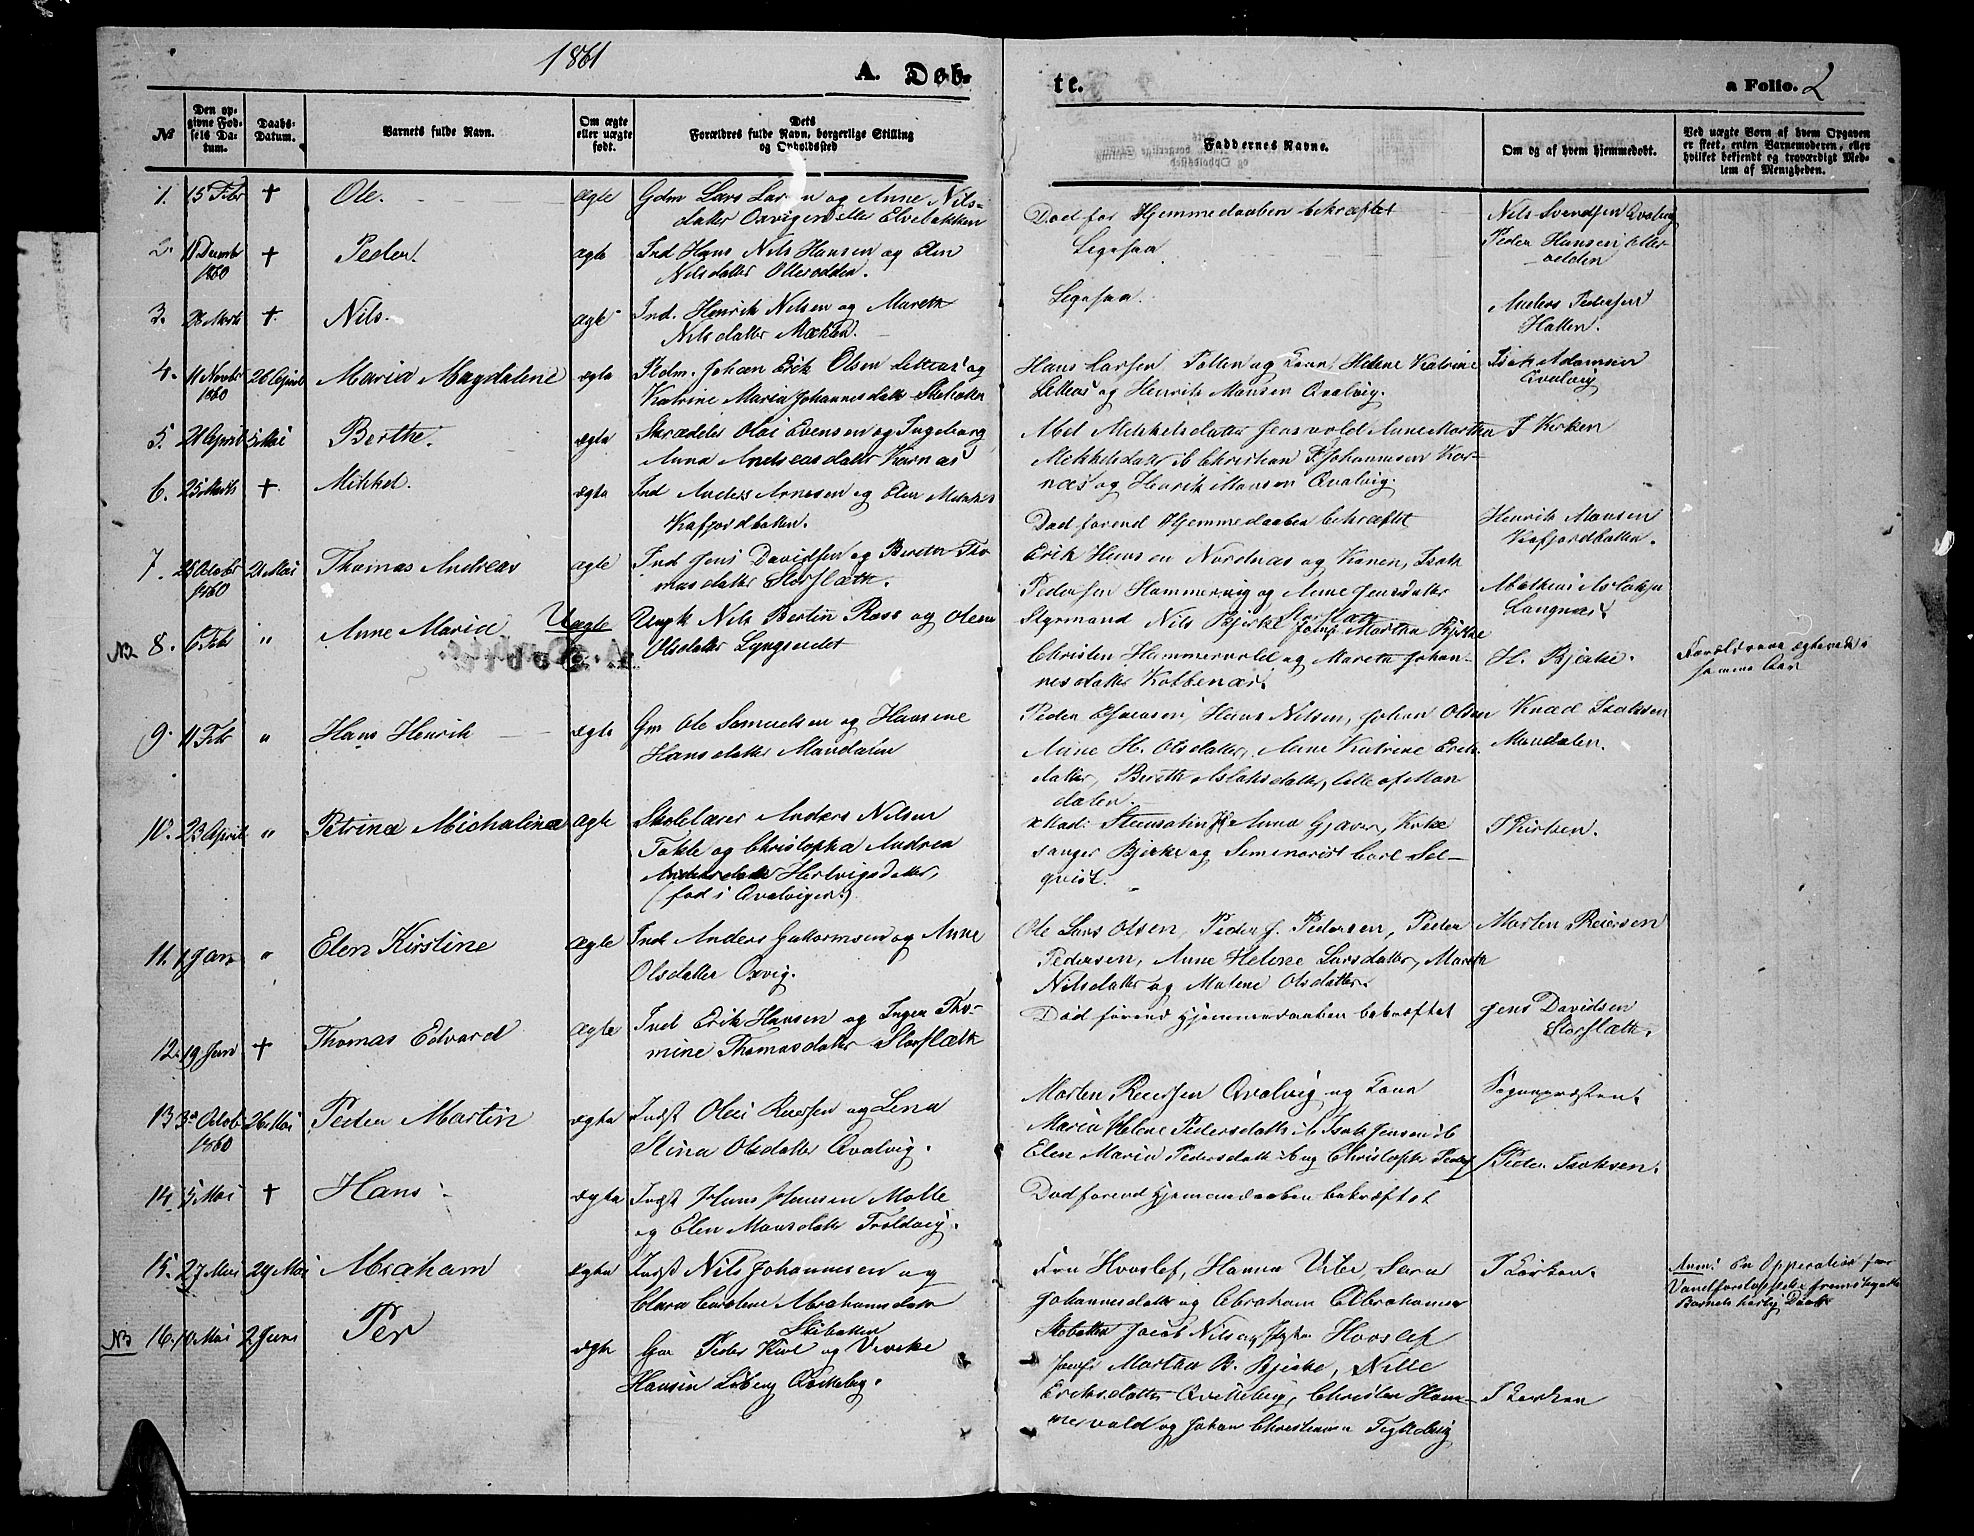 1861
A. Døb-
te.
a Folio. 2
No
Den op-
givne Fød-
sels Da-
tum.
Daabs-
Datum.
Barnets fulde Navn.
Om ægte
eller uægte
født.
Dets
Forældres fulde Navn, borgerlige Stilling
og Opholdssted
Faddernes Navne.
Om og af hvem hjemmedøbt.
Ved uægte Børn af hvem Opgaven
er skeet, enten Barnemoderen, eller
hvilket bekjendt og troværdigt Med-
lem af Menigheden.
1. 15 Febr + Ole. ægte Gdm Lars Lar n og Anne Nils-
datter Oxvigen eller Elvebakken
Død før Hjemmedaaben bekræftet
Nils Svendsen Qvalvig
2. 11 Decmb + Peder. ægte Ind Hans Nils Hansen og Elen
1860 Nilsdatter Olderodden.
Ligesaa
Peder Hansen Older-
odden
3. 28 Marts + Nils. ægte Ind. Henrik Nilsen og Mareth
Nilsdatter
Ligesaa.
Anders Pedersen
Hatten.
4. 11 Novbr 28 April Maria Magdalene ægte Pldm. Johan Erik Olsen Letteas og
1860 Katrine Maria Johannesdatt Skibotten
Hans Larsen Tollen og Kone, Helene Katrine
Letteas og Henrik Monsen Qvalvig.
Isak Adamsen
Qvalvig
5. 21 April 5 Mai Berthe. ægte Skrædder Olai Evensen og Ingeborg
Anna Andreasdatter Karnæs
Abel Mikkelsdatter Jensvold Anne Martha
Mikkelsdatter ib Christian F Johannesen Kar-
næs og Henrik Monsen Qvalvig.
I Kirken
6. 25 Marts + Mikkel. ægte Ind Anders Arnesen og Elen
Kafjordbotten.
Død forend Hjemmedaaben bekræftet
Henrik Monsen
Kafjordbotten.
7. 28 Octobr 21 Mai Thomas Andreas ægte Ind Jens Davidsen og Berethe Tho-
1860 masdatter Storslæth.
Erik Hansen Nordnæs og Konen, Isak
Pedersen Hammervig og Anne Jensdatter
Storslæth
Mathias Aslaksen
Langnæs.
NB 8. 6 Febr " Anne Maria Uægte Ungk Nils Bertin Ross og Olena
Olsdatter Lyngseidet
Styrmand Nils Bjerke Jomf Martha Bjerke
Christen Hammervold og Mareth Johan-
nesdatter Kobbenæs.
H. Bjerke.
Forældrene egteviede i
samme Aar
9. 11 Febr " Hans Henrik ægte Gm Ole Samuelsen og Hansine
Hansdatter Mandalen
Peder Hansen, Hans Nilsen, Johan Olsen
Anne H. Olsdatter, Anne Katrine Erik-
datter, Bereth Aslaksdatter, alle af Man
dalen.
Knud Isaksen
Mandalen.
10. 23 April " Petrina Michalina ægte Skolelærer Anders Nilsen
Tokle og Christopha Andrea
Hertvigsdatter,
(fød i Qvalvigen.)
Mad: Stensohn, Anna Gjæver, Kirke
sanger Bjerke og Seminarist Carl Sel-
qvist.
I Kirken.
11. 1 Jan " Elen Kirstine ægte Ind Anders Guttormsen og Anne
Olsdatter Oxvig.
Ole Lars Olsen, Peder J. Pedersen, Peder
Pedersen, Anne Helene Larsdatter, Mareth
Nilsdatter og Malene Olsdatter.
Morten Reiersen
12. 19 Jun + Thomas Edvard ægte Ind Erik Hansen og Inger Tho-
mine Thomasdatter Storslæth
Død forend Hjemmedaaben bekræftet
Jens Davidsen
Storslæth.
13 30 Octob 26 Mai Peder Martin ægte Indst Olai Reiersen og Lena
1860 Stina Olsdatter Qvalvig.
Morten Reiersen Qvalvig og Kone
Maria Helene Pedersdatter ib Isak Jensen ib
Elen Maria Pedersdatt ib og Christoph Peders
Sognepræsten.
14 5 Mai + Hans ægte Indst Hans Hansen Molle
og Elen Monsdatter Troldvig.
Død forend Hjemmedaaben bekræftet
Peder Isaksen.
15. 27 Mai 29 Mai Abraham ægte Indst Nils Johannesen og
Clara Caroline Abrahamsdatter
Skibotten
Fru Hovslef, Hanna Vibe, Sara
Johannesdatter og Abraham Abrahamsen
Skibotten Jacob Nils og Hovslef
I Kirken.
Anm: En Opperation for
Vandforløb
Barnets
NB 16. 10 Mai 2 Juni Per ægte Gm Peder Kiil og Viveke
Hansin Løberg Qvitteberg.
Jomf Martha B. Bjerke, Nille
Eriksdatter Qvitteberg, Christen Ham-
mervold og Johan Christiansen
I Kirken